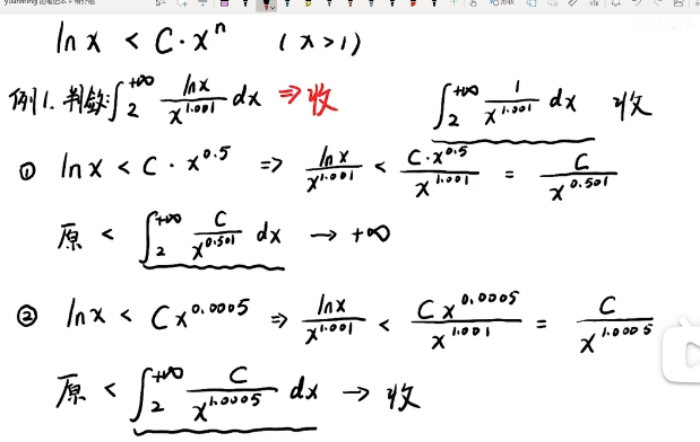 ln x < C·xⁿ (x>1)
例1. 判敛: ∫₂^{+∞} ln x / x^{1.001} dx ⇒ 收 ∫₂^{+∞} 1 / x^{1.001} dx 收
① ln x < C · x^{0.5} ⇒ ln x / x^{1.001} < C·x^{0.5} / x^{1.001} = C / x^{0.501}
原 < ∫₂^{+∞} C / x^{0.501} dx → +∞
② ln x < C x^{0.0005} ⇒ ln x / x^{1.001} < C x^{0.0005} / x^{1.001} = C / x^{1.0005}
原 < ∫₂^{+∞} C / x^{1.0005} dx → 收